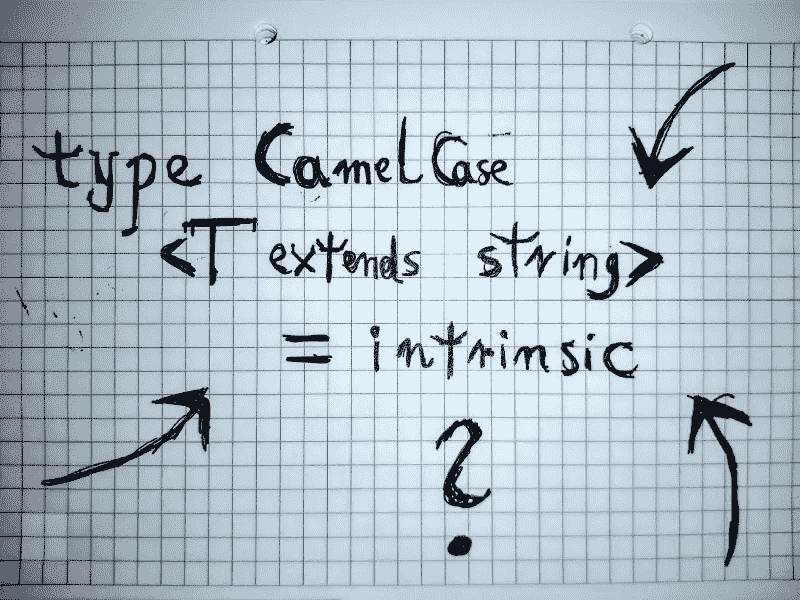 type CamelCase
<T extends string>
= intrinsic
?